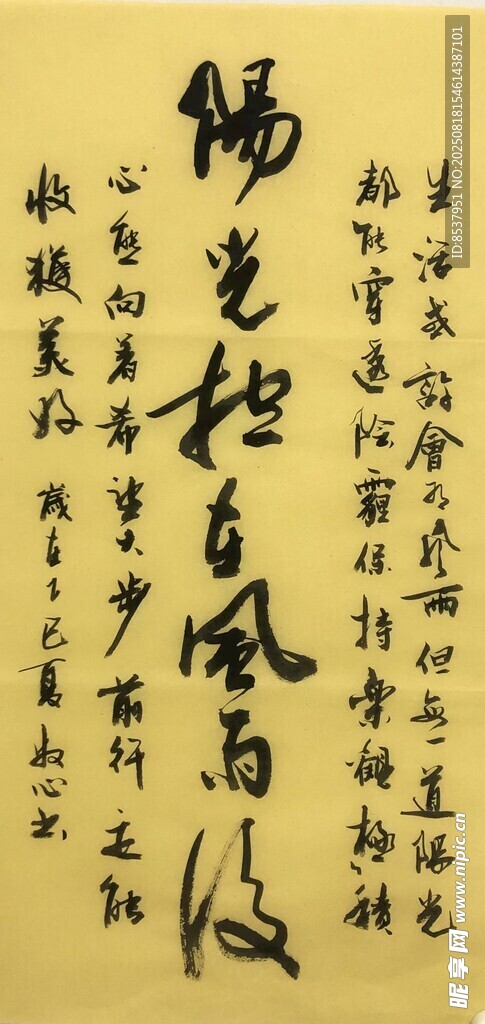 生活或許會有風雨但每一道陽光
都能穿透陰霾保持樂觀極積
陽光捴在風雨後
心態向着希望大步前行定能
收獲美好 歲在乙巳夏如心書
ID:8537951 NO:20250818154614387101
昵享网 www.nipic.cn